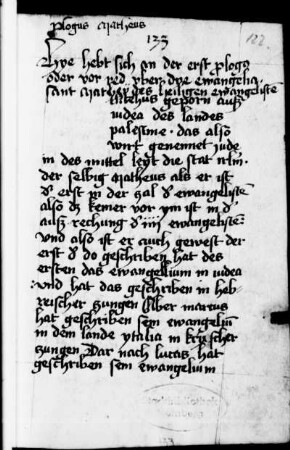 Plogus Matheus
133
122
Hye hebt sich an der erst plogus
oder vor red vber dye ewangelia
sant Matheus des heiligen ewangelisten
Matheus geporn auß
iudea des landes
palestine . das also
wirt genennet jude
in des mittel leyt die stat
der selbig Matheus als er ist
d erst in der zal d ewangelisten
also dz keiner vor ym ist in d
auß rechung d iiii ewangelisten
vnd also ist er auch gewest der
erst d do geschriben hat des
ersten das ewangelium in iudea
vnd hat das geschriben in hab
reischer zungen Aber marcus
hat geschriben sein ewangeliu
in dem lande ytalia in krischer
zungen Dar nach lucas hat
geschriben sein ewangelium